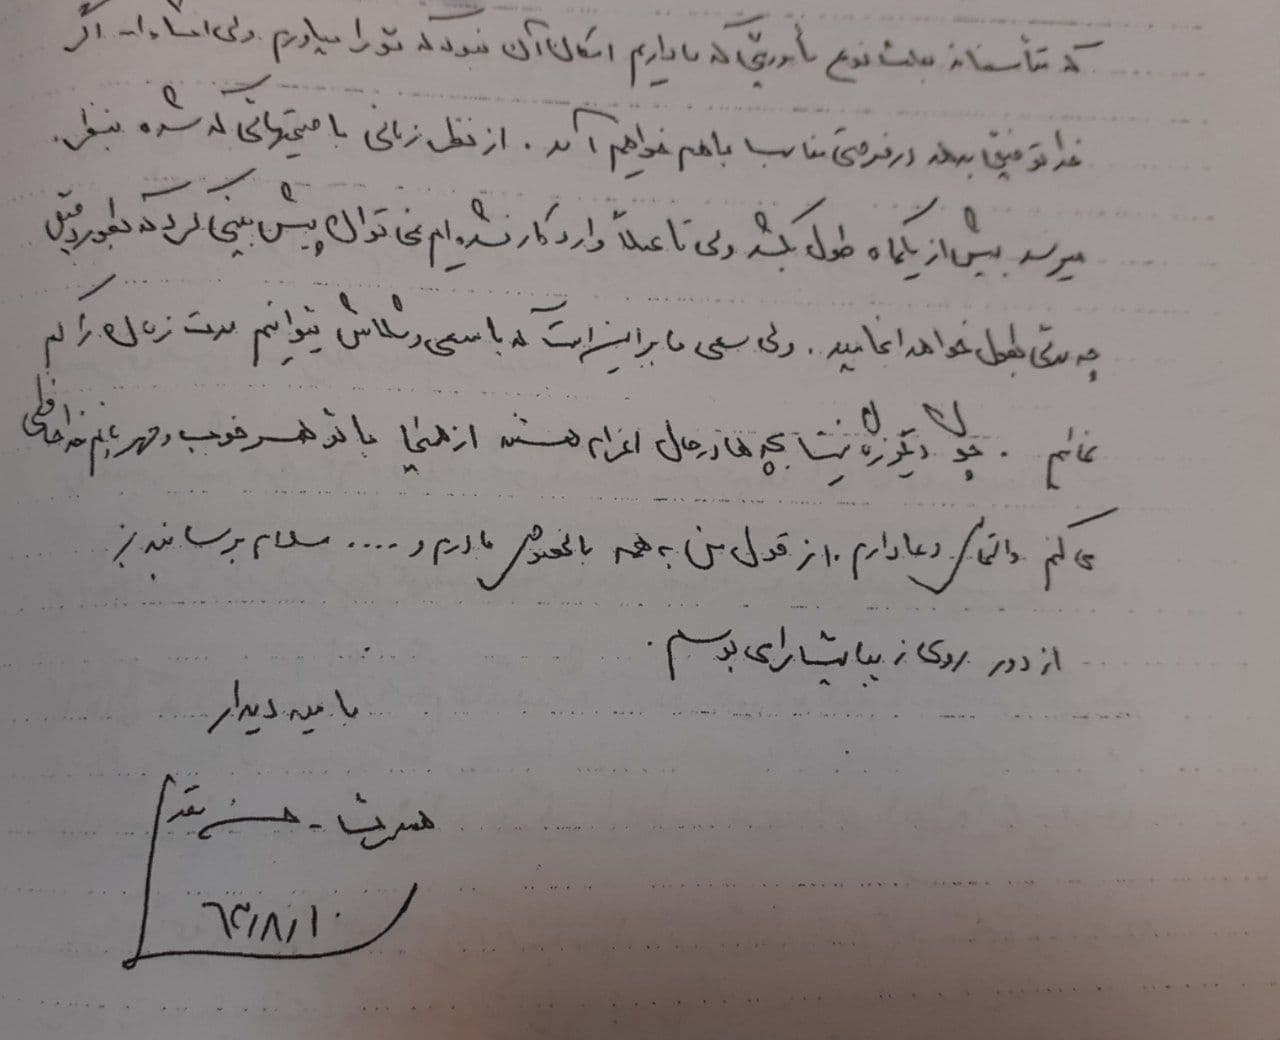 که متأسفانه بعلت نوع مأموریتی که ما داریم امکان آن نبود که تو را بیاورم ولی انشاءاله اگر
خدا توفیق بدهد در فرصتی مناسب با هم خواهیم آمد . از نظر زمانی با صحبتهائی که شده بنظر
میرسد بیش از یکماه طول بکشد ولی تا عملاً وارد کار نشده‌ایم نمی توان پیش بینی کرد که بطور دقیق
چه مدتی بطول خواهد انجامید . ولی سعی ما براین است که با سعی و تلاش بتوانیم مدت زمان را کم
نمائیم . چون دیگر بچه ها در حال اعزام هستند از همینجا با تو همسر خوب و مهربانم خداحافظی
می کنم و التماس دعا دارم . از قول من به همه بالخصوص مادرم و .... سلام برسانید
از دور روی زیبایتان را می بوسم .
بامید دیدار
همسرت - حسن
۶۳/۸/۱۰